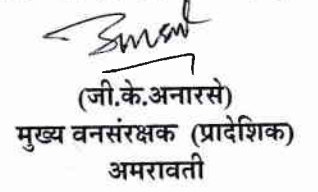 (जी.के.अनारसे)
मुख्य वनसंरक्षक (प्रादेशिक)
अमरावती